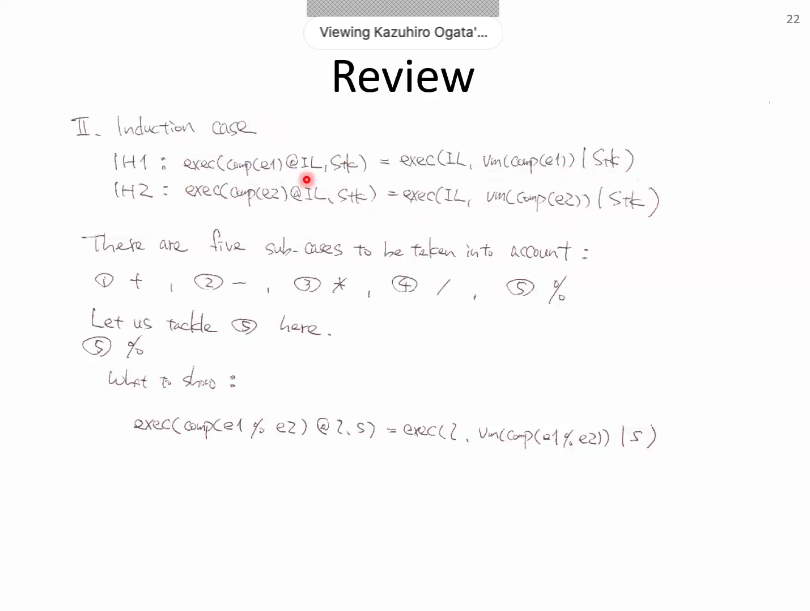 22
Viewing Kazuhiro Ogata'...
Review
II. Induction case
IH1 : exec(comp(e1)@IL,Stk) = exec(IL, vm(comp(e1)) | Stk)
IH2 : exec(comp(e2)@IL,Stk) = exec(IL, vm(comp(e2)) | Stk)
There are five sub-cases to be taken into account :
① + , ② - , ③ * , ④ / , ⑤ %
Let us tackle ⑤ here.
⑤ %
What to show :
exec(comp(e1 % e2) @ l, s) = exec(l, vm(comp(e1 % e2)) | s)